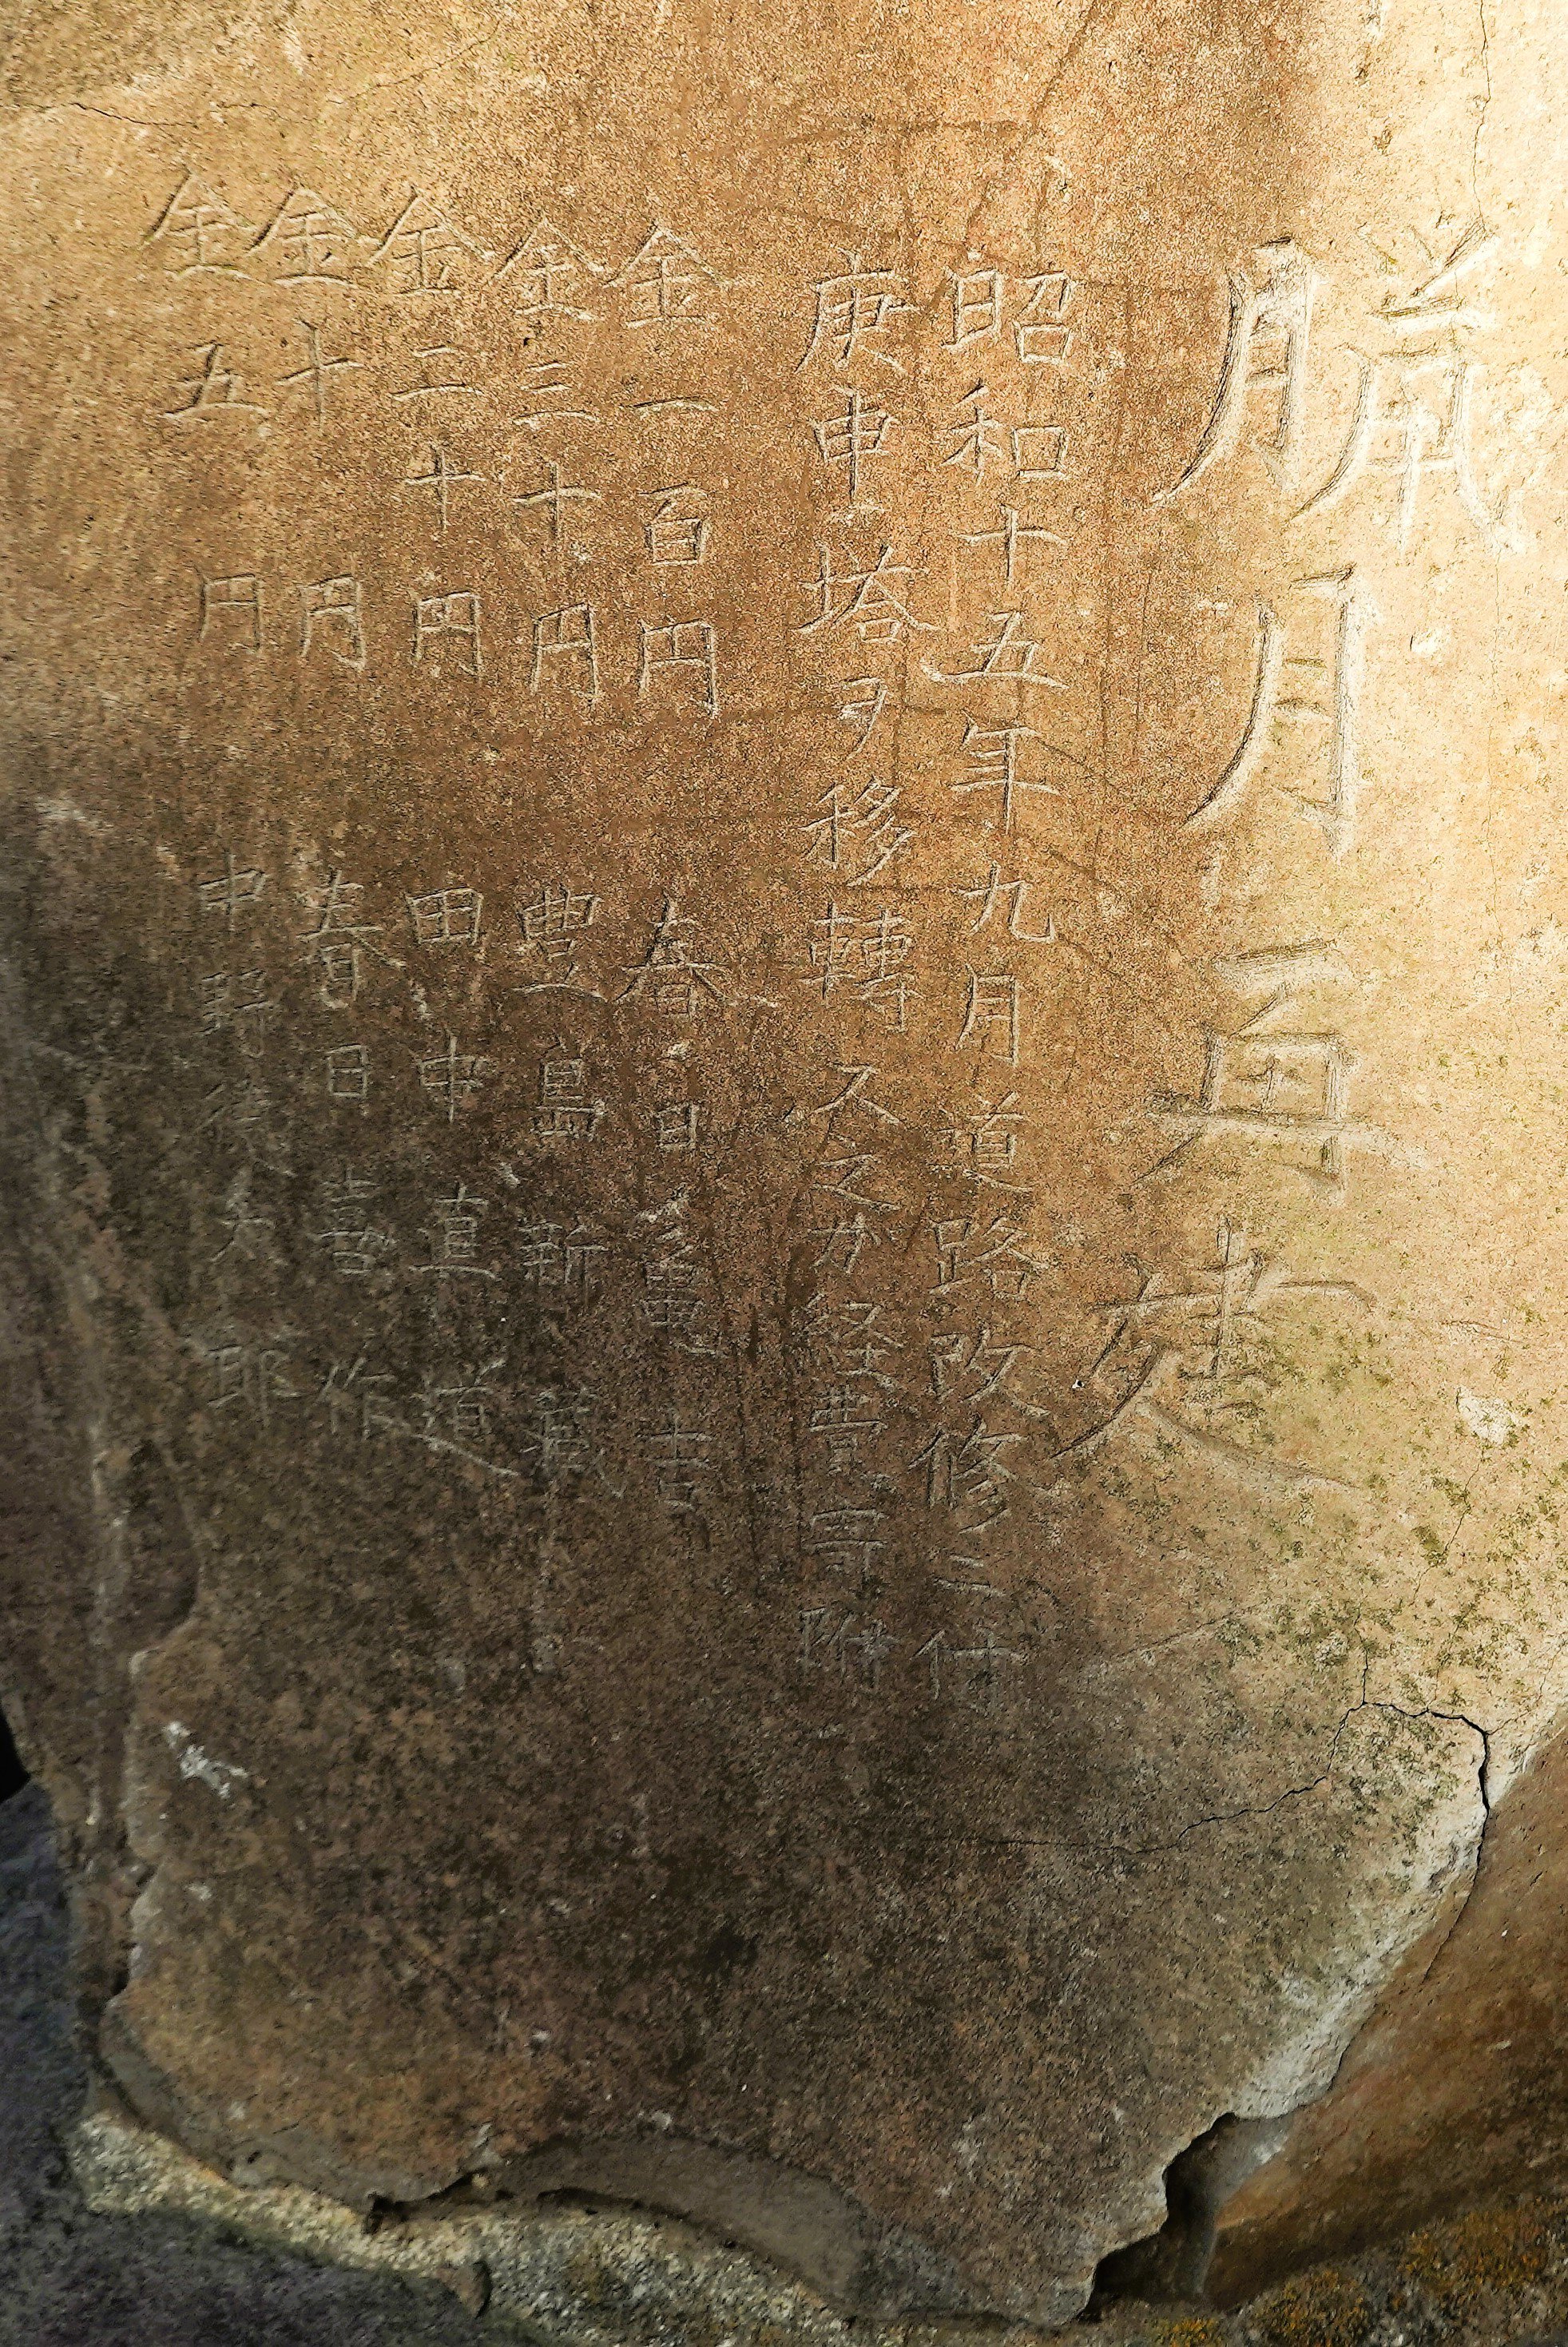 臘月再建
昭和十五年九月道路改修ニ付
庚申塔ヲ移轉ス之カ経費寄附
金一百円 春日亀吉
金三十円 豊島新蔵
金二十円 田中直道
金十円 春日喜作
金五円 中野徳太郎